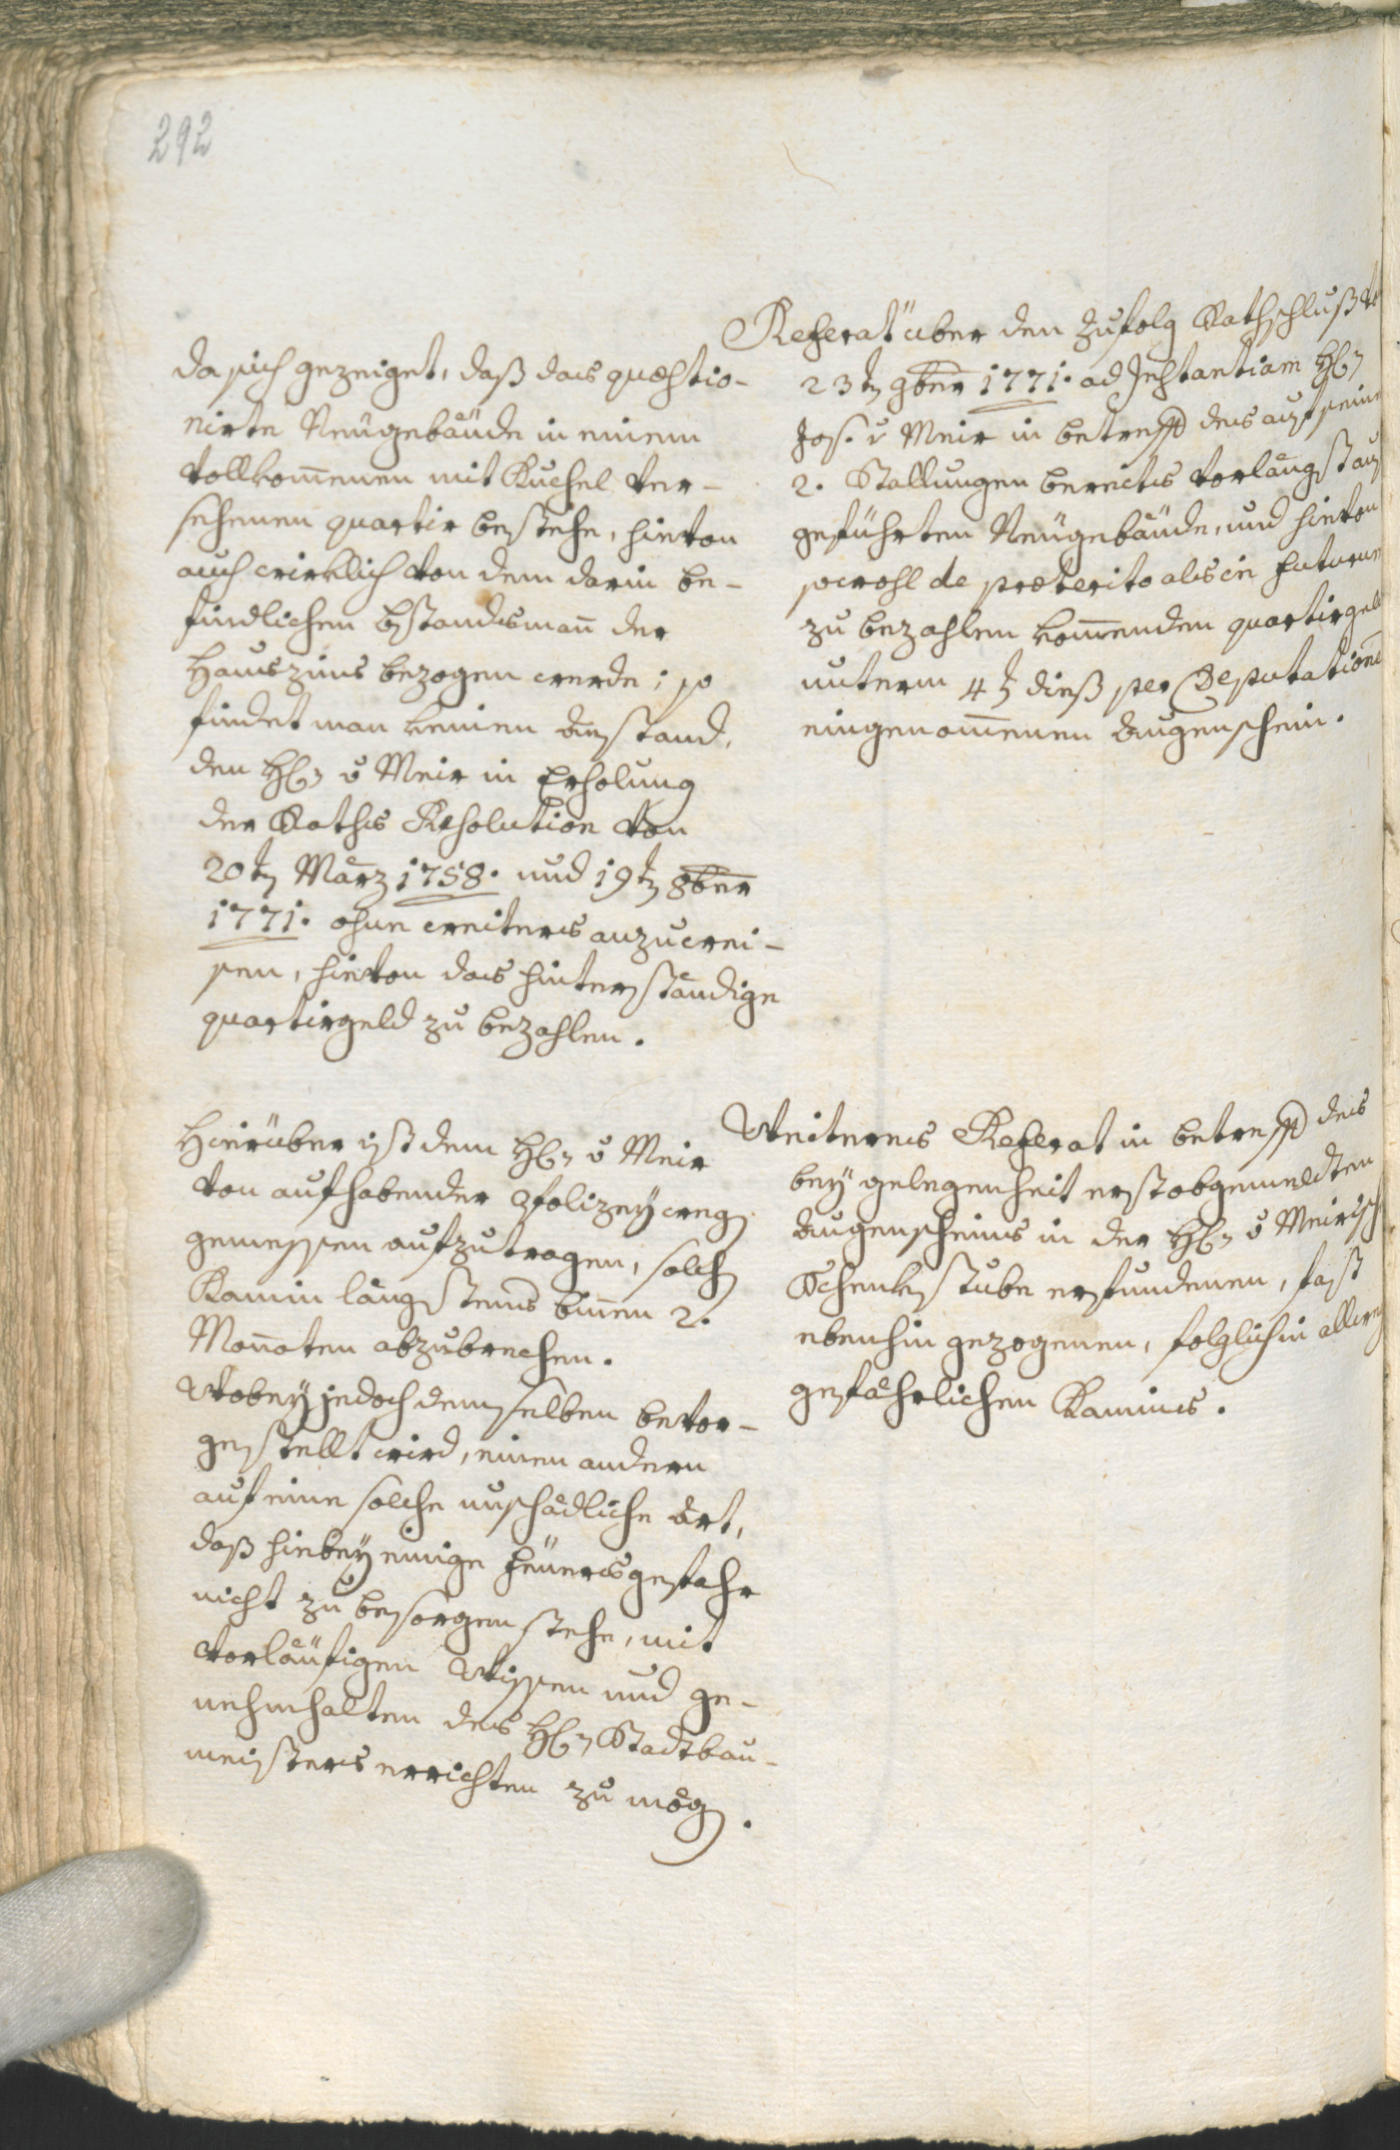 292
Referat über den zufolg Rathschluß de
23tn 9ber 1771. ad Instantiam Hn
Jos. v Meir in betreff des auf seine
2. Stallungen bereits vorlängst auf
geführten Neügebäude, und hievon
sowohl de præterito als in futurum
zu bezahlen kommenden quartirgeld
unterm 4t dieß per Deputatione
eingenommenen Augenschein.
da sich gezeiget, daß das quæstio-
nirte Neügebäude in einem
vollkommenen mit Kuchel ver-
sehenen quartir bestehe, hievon
auch wirklich von dem darin be-
findlichen Bstandsmann der
Hauszins bezogen werde; so
findet man keinen Anstand,
den Hn v Meir in Erholung
der Raths Resolution von
20tn März 1758. und 19tn 8ber
1771. ohne weiters anzuwei-
sen, hievon das hinterständige
quartirgeld zu bezahlen.
Weiteres Referat in betreff des
bey gelegenheit erstobgemeldten
Augenscheins in der Hn v Meirisch
Schenkstube erfundenen, fast
ebenhin gezogenen, folglich in allweg
gefährlichen Kamins.
Hierüber ist dem Hn v Meir
von aufhabender Polizeywegn
gemessen aufzutragen, solch
Kamin längstens binnen 2.
Monaten abzubrechen.
Wobey jedoch demselben bevor-
gestellt wird, einen andern
auf eine solche unschädliche Art,
daß hiebey einige feüersgefahr
nicht zu besorgen stehe, mit
vorläufigen Wissen und ge-
nehmhalten des Hn Stadtbau-
meisters errichten zu mögn.